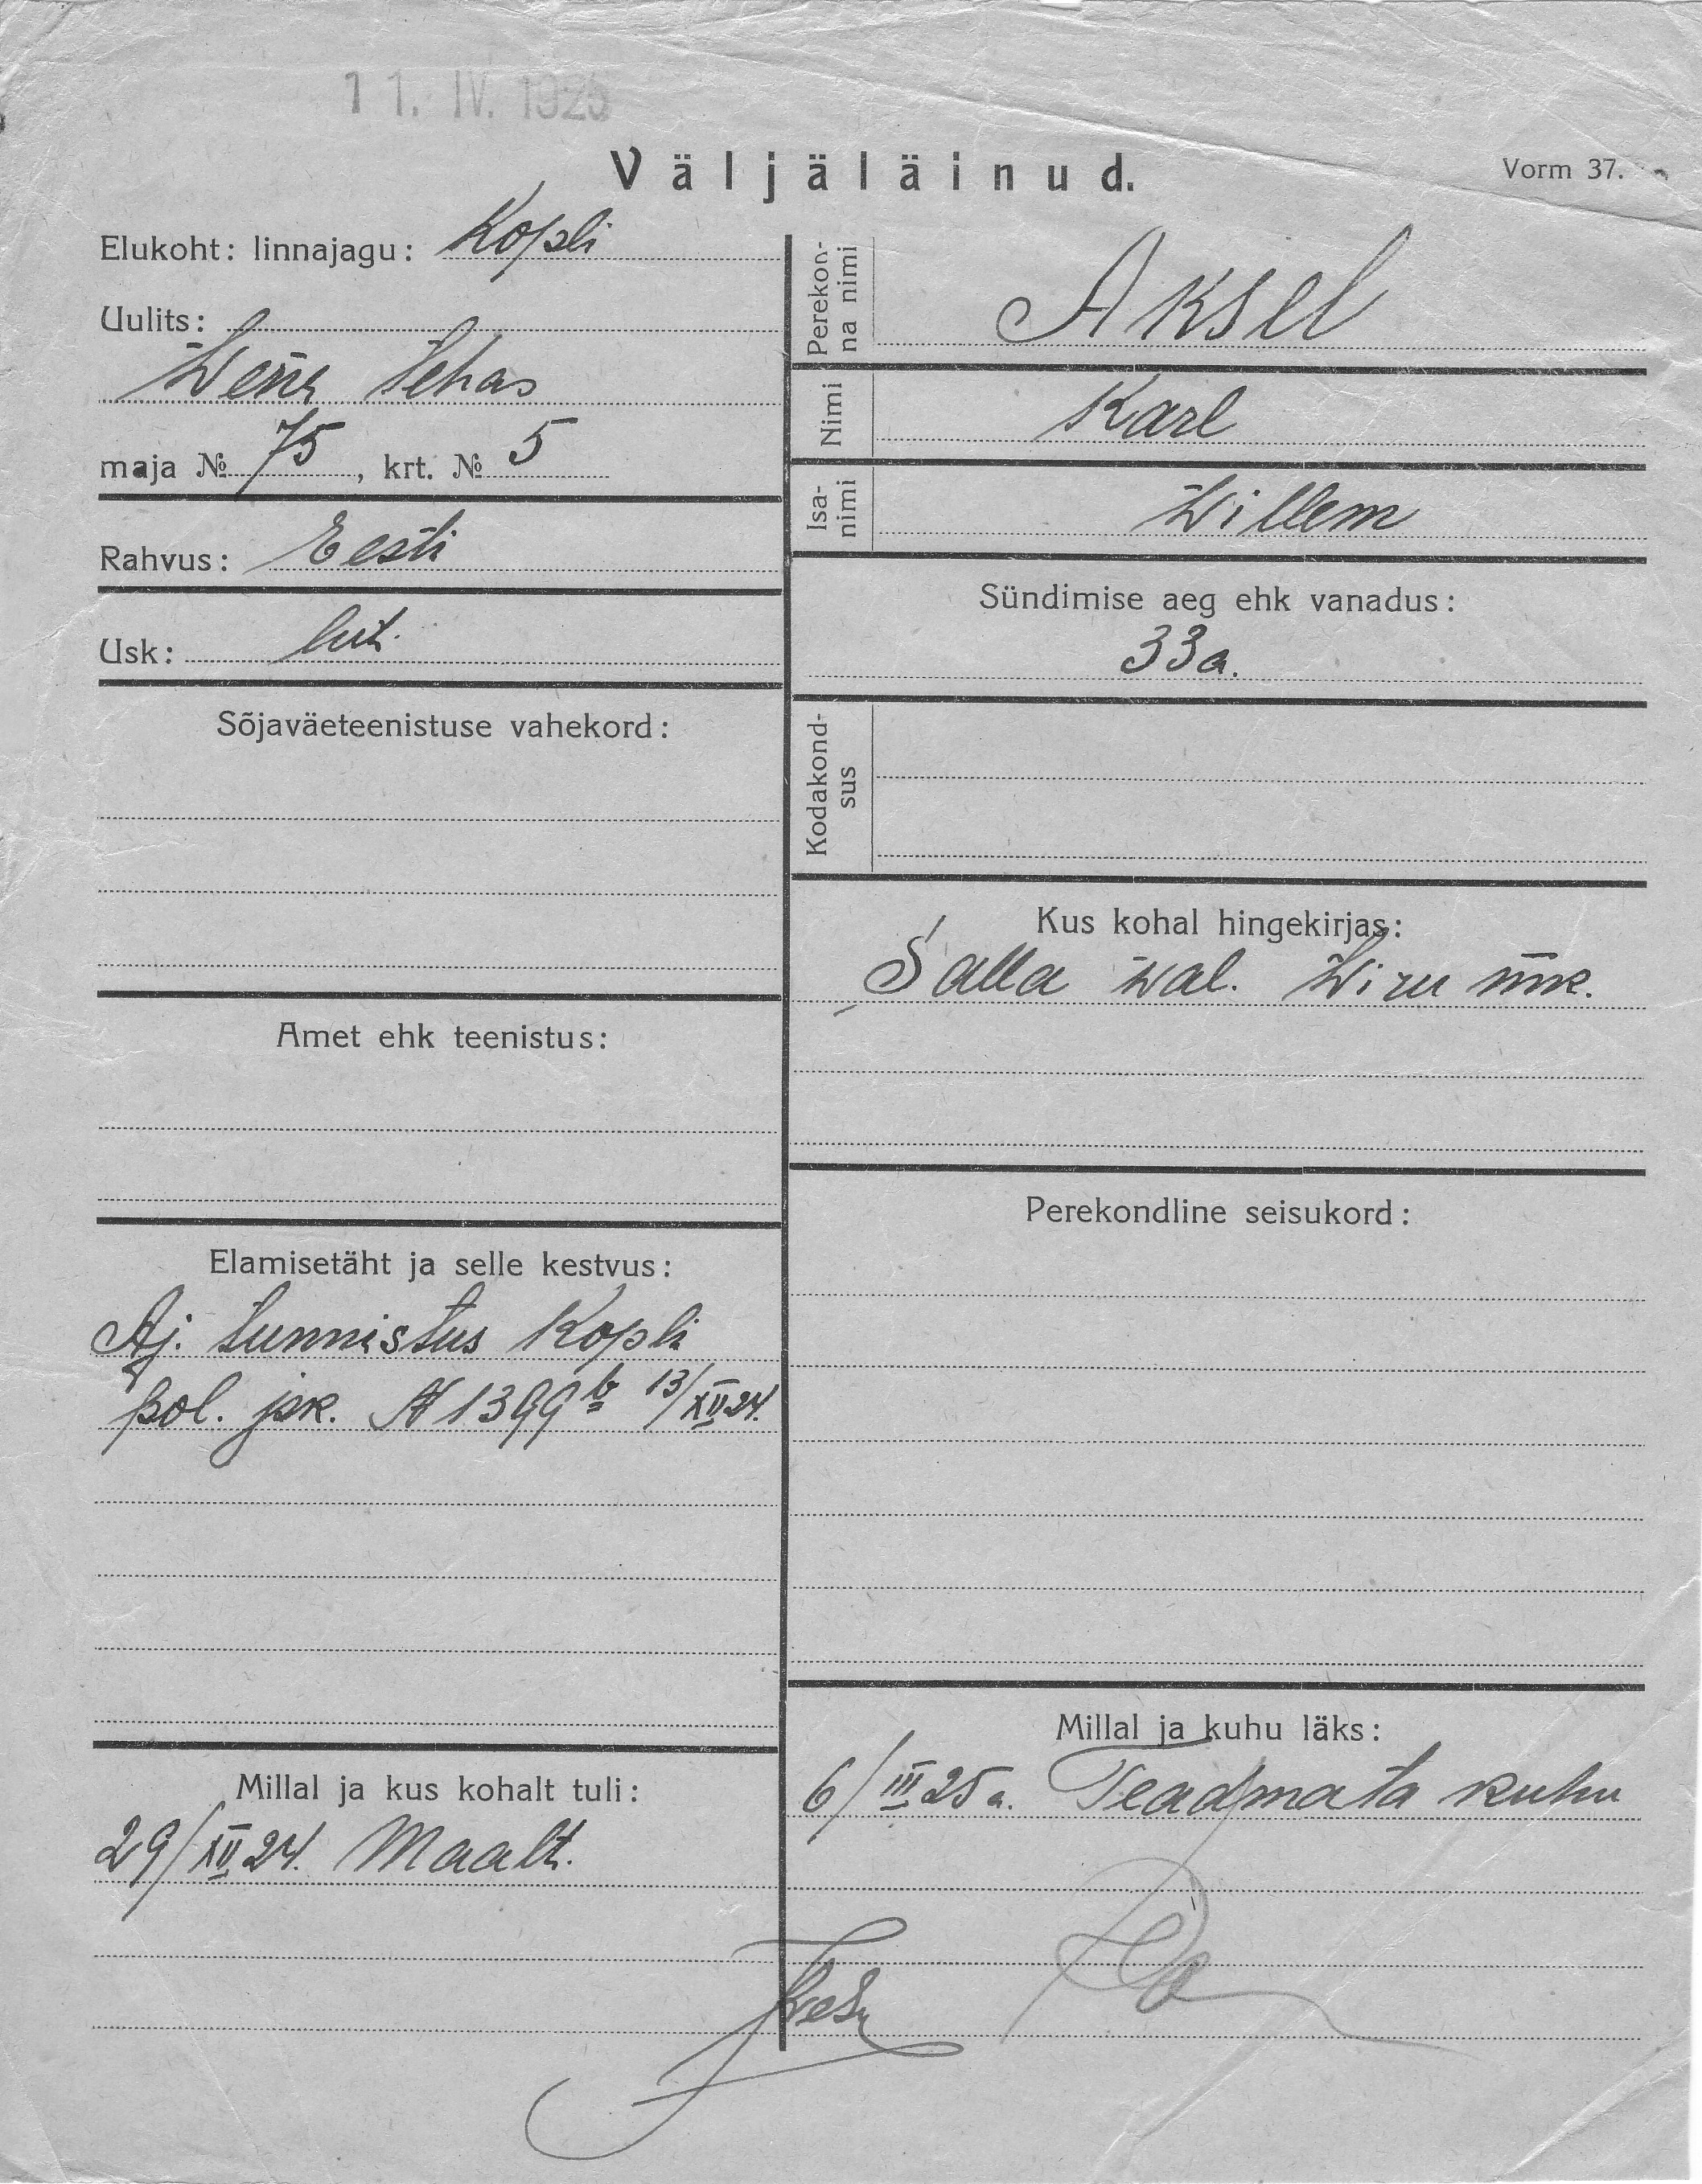 11. IV. 1925
Väljäläinud.
Vorm 37.
Elukoht: linnajagu: Kopli
Uulits:
Wene tehas
maja № 75, krt. № 5
Rahvus: Eesti
Usk: lut.
Sõjaväeteenistuse vahekord:
Amet ehk teenistus:
Elamisetäht ja selle kestvus:
Aj. tunnistus Kopli
pol. jsk. № 1399b 13/XII 24.
Millal ja kus kohalt tuli:
29/XII 24. Maalt.
Perekonna nimi
Aksel
Nimi
Karl
Isanimi
Willem
Sündimise aeg ehk vanadus:
33 a.
Kodakondsus
Kus kohal hingekirjas:
Salla wal. Wiru mk.
Perekondline seisukord:
Millal ja kuhu läks:
6/III 25 a. Teadmata kuhu